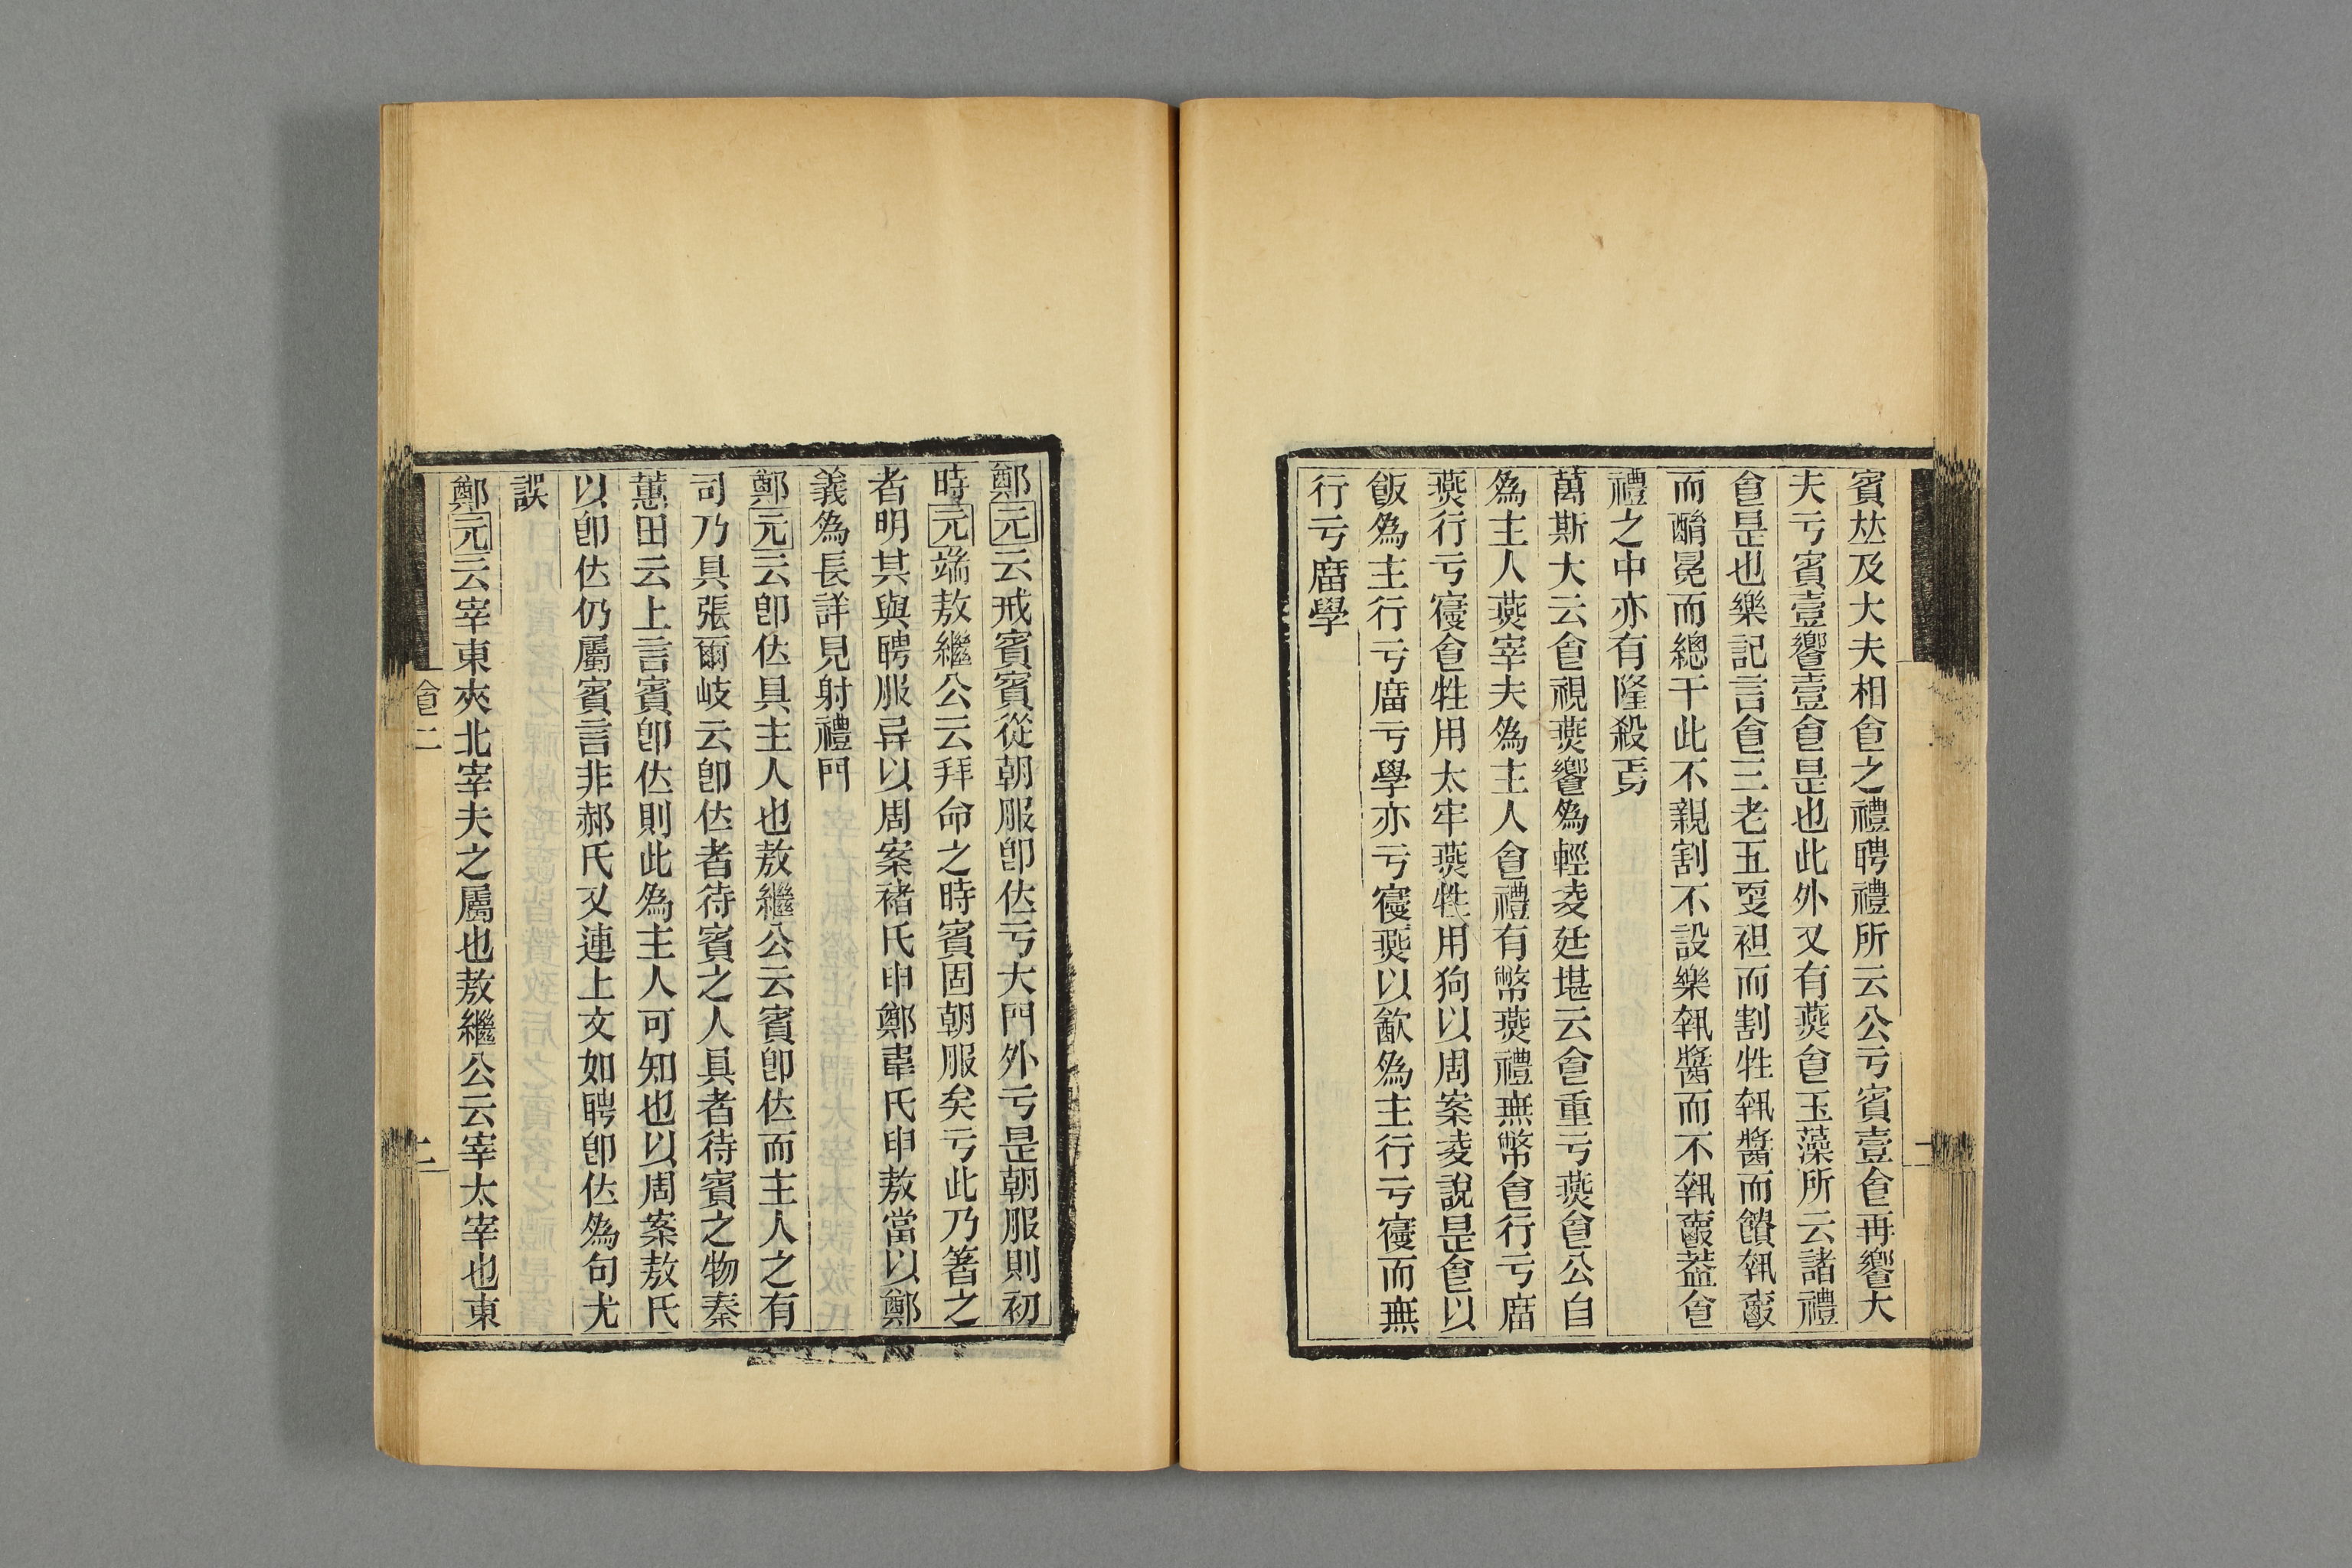 賓𠀤及大夫相𠊊之禮聘禮所云公亏賓壹𠊊再饗大
夫亏賓壹饗壹𠊊是也此外又有燕𠊊玉藻所云諸禮
𠊊是也樂記言𠊊三老五㪅袒而割牲執醬而饋執
而酳冕而總干此不親割不設樂執醬而不執葢𠊊
禮之中亦有隆殺焉
萬斯大云𠊊視燕饗為輕凌廷堪云𠊊重亏燕𠊊公自
為主人燕宰夫為主人𠊊禮有幣燕禮無幣𠊊行亏庿
燕行亏寢𠊊牲用太牢燕牲用狗以周案凌說是𠊊以
飯為主行亏庿亏學亦亏寢燕以㱃為主行亏寢而無
行亏庿學
鄭元云戒賓賓從朝服卽位亏大門外亏是朝服則初
時元端敖繼公云拜命之時賓固朝服矣亏此乃箸之
者明其與聘服异以周案褚氏申鄭韋氏申敖當以鄭
義為長詳見射禮門
鄭元云卽位具主人也敖繼公云賓卽位而主人之有
司乃具張爾岐云卽位者待賓之人具者待賓之物秦
蕙田云上言賓卽位則此為主人可知也以周案敖氏
以卽位仍屬賓言非郝氏又連上文如聘卽位為句尤
誤
鄭元云宰東夾北宰夫之屬也敖繼公云宰太宰也東
𠊊二
二